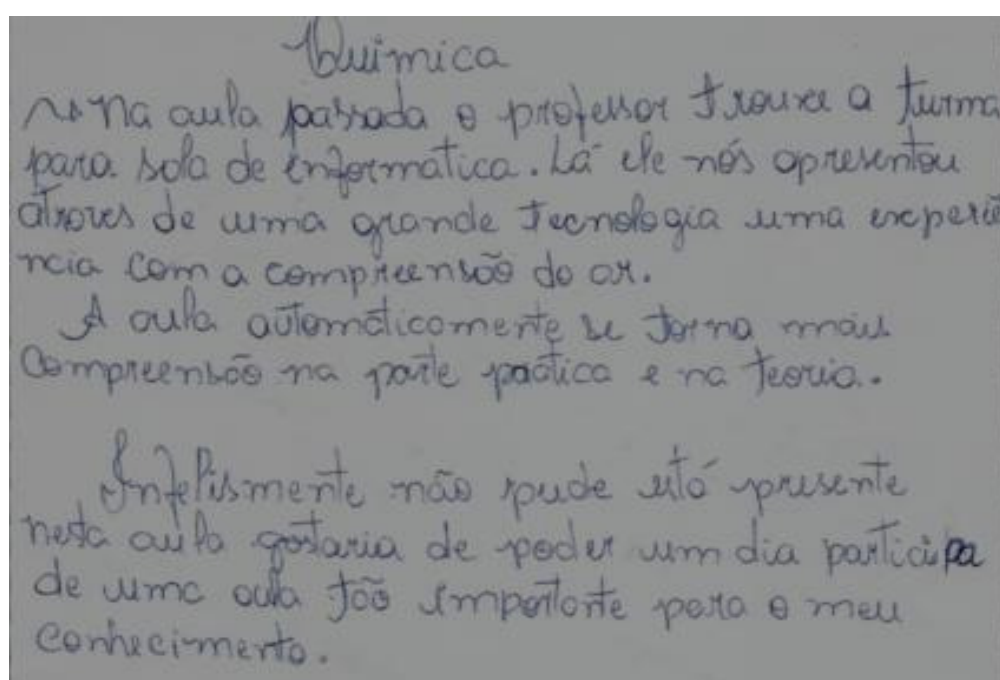 Quimica
Na aula passada o professor trouxe a turma
para sala de informática. Lá ele nós apresentou
atraves de uma grande tecnologia uma experiê
ncia com a compreensão do ar.
A aula automáticamente se torna mais
compreensão na parte práctica e na teoria.
Infelismente não pude está presente
nesta aula gostaria de poder um dia participa
de uma aula tão importante para o meu
conhecimento.